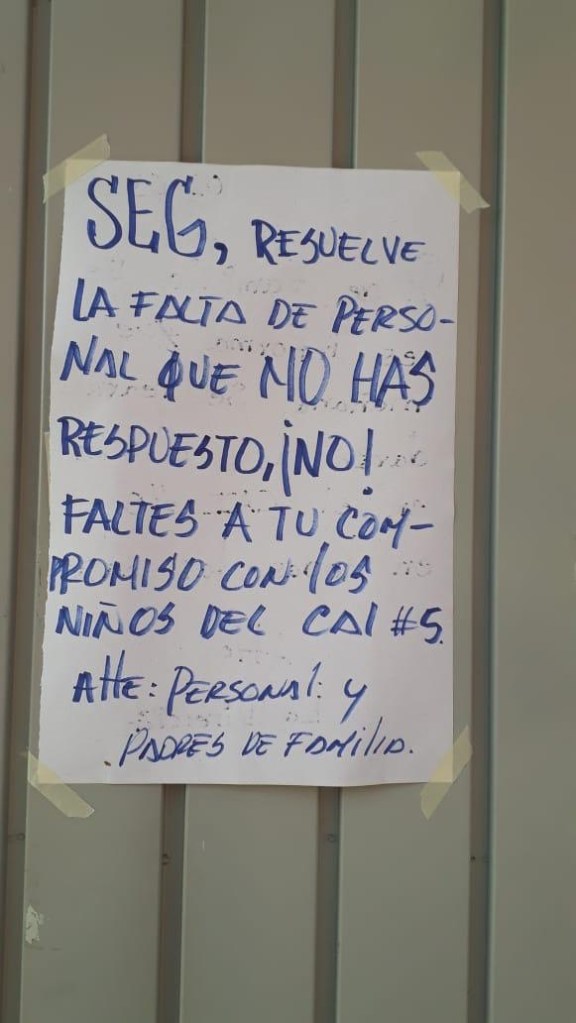 SEG, RESUELVE
LA FALTA DE PERSO-
NAL QUE NO HAS
RESPUESTO, ¡NO!
FALTES A TU COM-
PROMISO CON los
NIÑOS DEL CAI #5.
Atte: PERSONAl: y
PADRES DE FAMiliA.